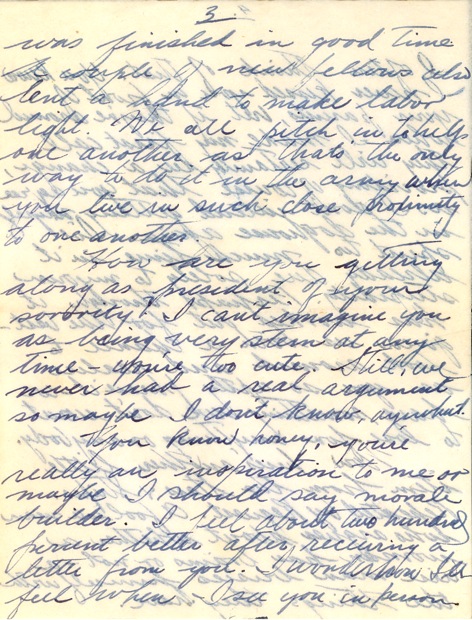 3
was finished in good time
A couple of new fellows also
lent a hand to make labor
light. We all pitch in to help
one another as that's the only
way to do it in the army when
you live in such close proximity
to one another.
How are you getting
along as president of your
sorority? I can't imagine you
as being very stern at any
time - you're too cute. Still, we
never had a real argument
so maybe I don't know, anywhat.
You know honey, you're
really an inspiration to me or
maybe I should say morale
builder. I feel about two hundred
percent better after receiving a
letter from you. I wonder how I'll
feel when I see you in person.